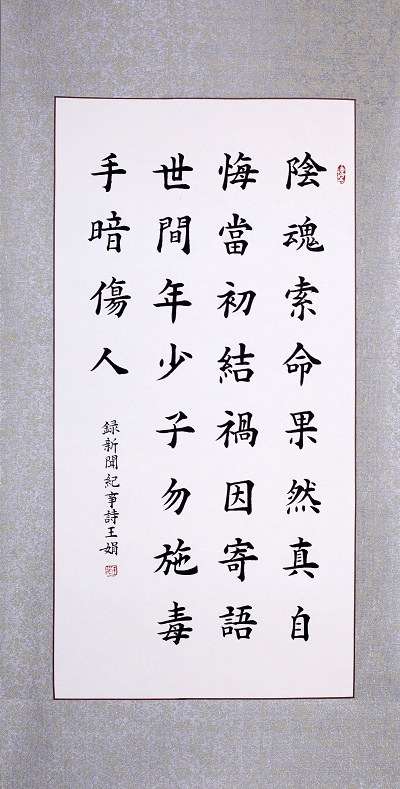 陰魂索命果然真自
悔當初結禍因寄語
世間年少子勿施毒
手暗傷人
録新聞紀事詩王娟